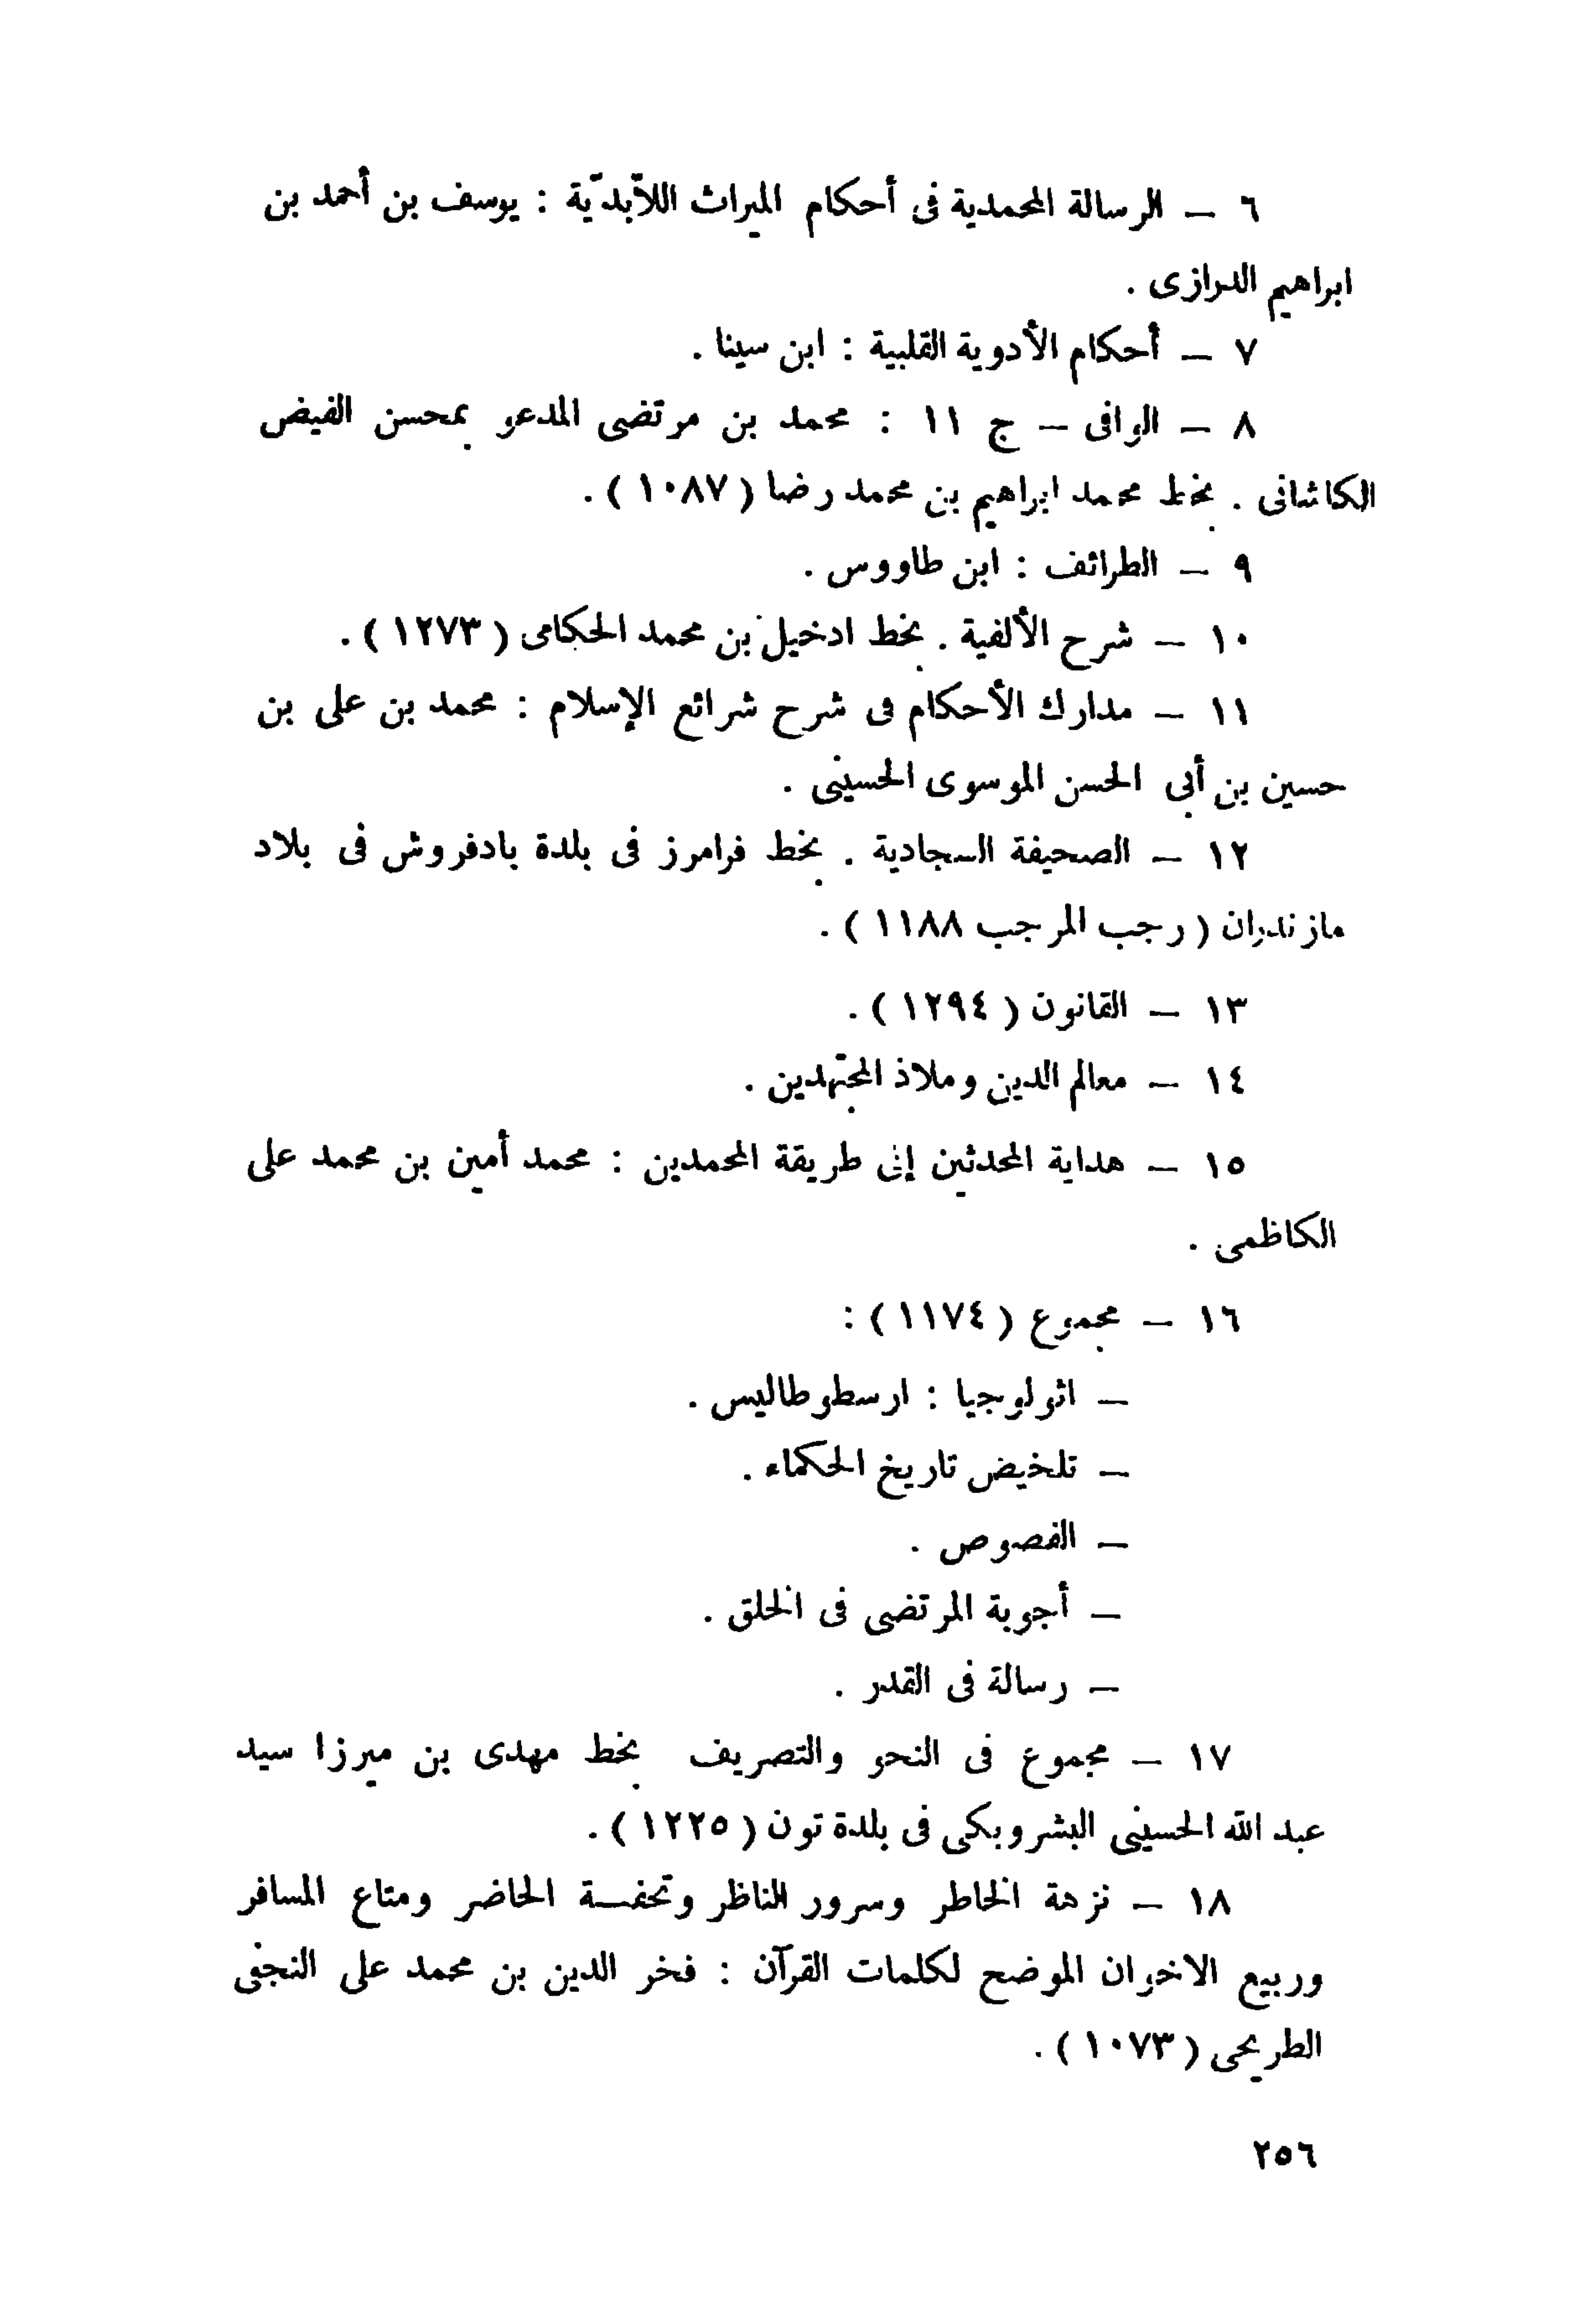 ٦ – الرسالة المحمدية فى أحكام الميراث اللاّبدّية : يوسف بن أحمد بن
ابراهيم الدرازى .
٧ – أحكام الأدوية القلبية : ابن سينا .
٨ – الوافى – ج ١١ : محمد بن مرتضى المدعو بمحسن الفيض
الكاشانى . بخط محمد ابراهيم بن محمد رضا ( ١٠٨٧ ) .
٩ – الطرائف : ابن طاووس .
١٠ – شرح الألفية . بخط ادخيل بن محمد الحكامى ( ١٢٧٣ ) .
١١ – مدارك الأحكام فى شرح شرائع الإسلام : محمد بن على بن
حسين بن أبى الحسن الموسوى الحسينى .
١٢ – الصحيفة السجادية . بخط فرامرز فى بلدة بادفروش فى بلاد
مازندران ( رجب المرجب ١١٨٨ ) .
١٣ – القانون ( ١٢٩٤ ) .
١٤ – معالم الدين وملاذ المجتهدين .
١٥ – هداية المحدثين إلى طريقة المحمدين : محمد أمين بن محمد على
الكاظمى .
١٦ – مجموع ( ١١٧٤ ) :
– اثولوجيا : ارسطوطاليس .
– تلخيض تاريخ الحكماء .
– الفصوص .
– أجوبة المرتضى فى الخلق .
– رسالة فى القدر .
١٧ – مجموع فى النحو والتصريف بخط مهدى بن ميرزا سيد
عبد الله الحسينى البشروبكى فى بلدة تون ( ١٢٢٥ ) .
١٨ – نزهة الخاطر وسرور الناظر وتحفة الحاضر ومتاع المسافر
وربيع الاخوان الموضح لكلمات القرآن : فخر الدين بن محمد على النجفى
الطريحى ( ١٠٧٣ ) .
٢٥٦